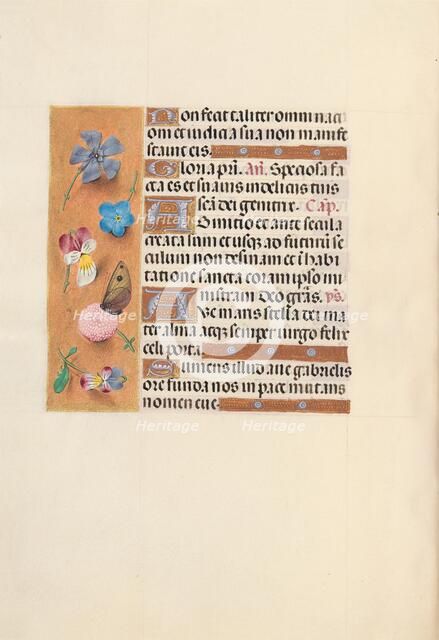 Non fecit taliter omni naci
oni et iudicia sua non manife
stauit eis.
Gloria pri. An. Speciosa fa
cta es et suauis in deliciis tuis
scā dei genitrix. Cap.
Ab initio et ante secula
creata sum et usqȝ ad futurū se
culum non desinam et ī habi
tatione sancta coram ipso mi
nistraui. Deo grās. ps.
Aue maris stella dei ma
ter alma atqȝ semper uirgo felix
celi porta.
Sumens illud aue gabrielis
ore funda nos in pace mutans
nomen eue.
Heritage Heritage
Heritage Heritage
Heritage Heritage